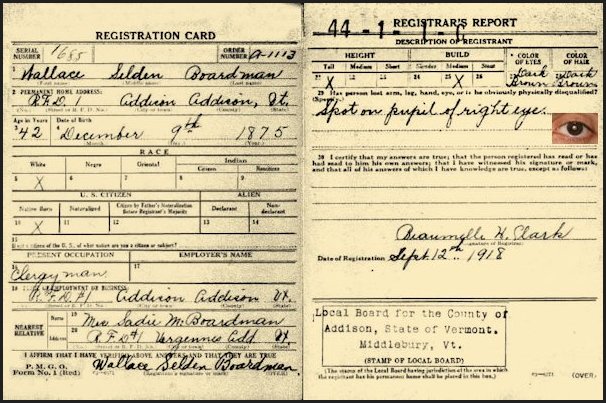 REGISTRATION CARD
SERIAL NUMBER 1685 ORDER NUMBER A-1113
Wallace Selden Boardman
2 PERMANENT HOME ADDRESS:
R.F.D. Addison Addison, Vt.
Age in Years Date of Birth
42 December 9th 1875
RACE
White Negro Oriental Indian
Citizen
5 X 6 7 8 9
U. S. CITIZEN ALIEN
Native Born Naturalized Citizen by Father's Naturalization Before Registrant's Majority Declarant Non-declarant
10 X 11 12 13 14
15
If not a citizen of the U. S., of what nation are you a citizen or subject?
PRESENT OCCUPATION EMPLOYER'S NAME
Clergyman
R.F.D. #1 Addison Addison Vt.
NEAREST RELATIVE Name 19 Mrs Sadie M. Boardman
Address 20 R.F.D #1 Vergennes Add Vt.
I AFFIRM THAT I HAVE VERIFIED ABOVE ANSWERS AND THAT THEY ARE TRUE
P. M. G. O.
Form No. 1 (Red)
Wallace Selden Boardman
(OVER)
REGISTRAR'S REPORT
44-1-1-
DESCRIPTION OF REGISTRANT
HEIGHT BUILD COLOR OF EYES COLOR OF HAIR
Tall Medium Short Slender Medium Stout
X X Dark Brown Dark Brown
29 Has person lost arm, leg, hand, eye, or is he obviously physically disqualified?
(Specify.)
Spot on pupil of right eye.
30 I certify that my answers are true; that the person registered has read or has
had read to him his own answers; that I have witnessed his signature or mark,
and that all of his answers of which I have knowledge are true, except as follows:
Clark
(Signature of Registrar)
Date of Registration Sept. 12th 1918
Local Board for the County of
Addison, State of Vermont.
Middlebury, Vt.
(STAMP OF LOCAL BOARD)
(The stamp of the Local Board having jurisdiction of the area in which
the registrant has his permanent home shall be placed in this box.)
(OVER)